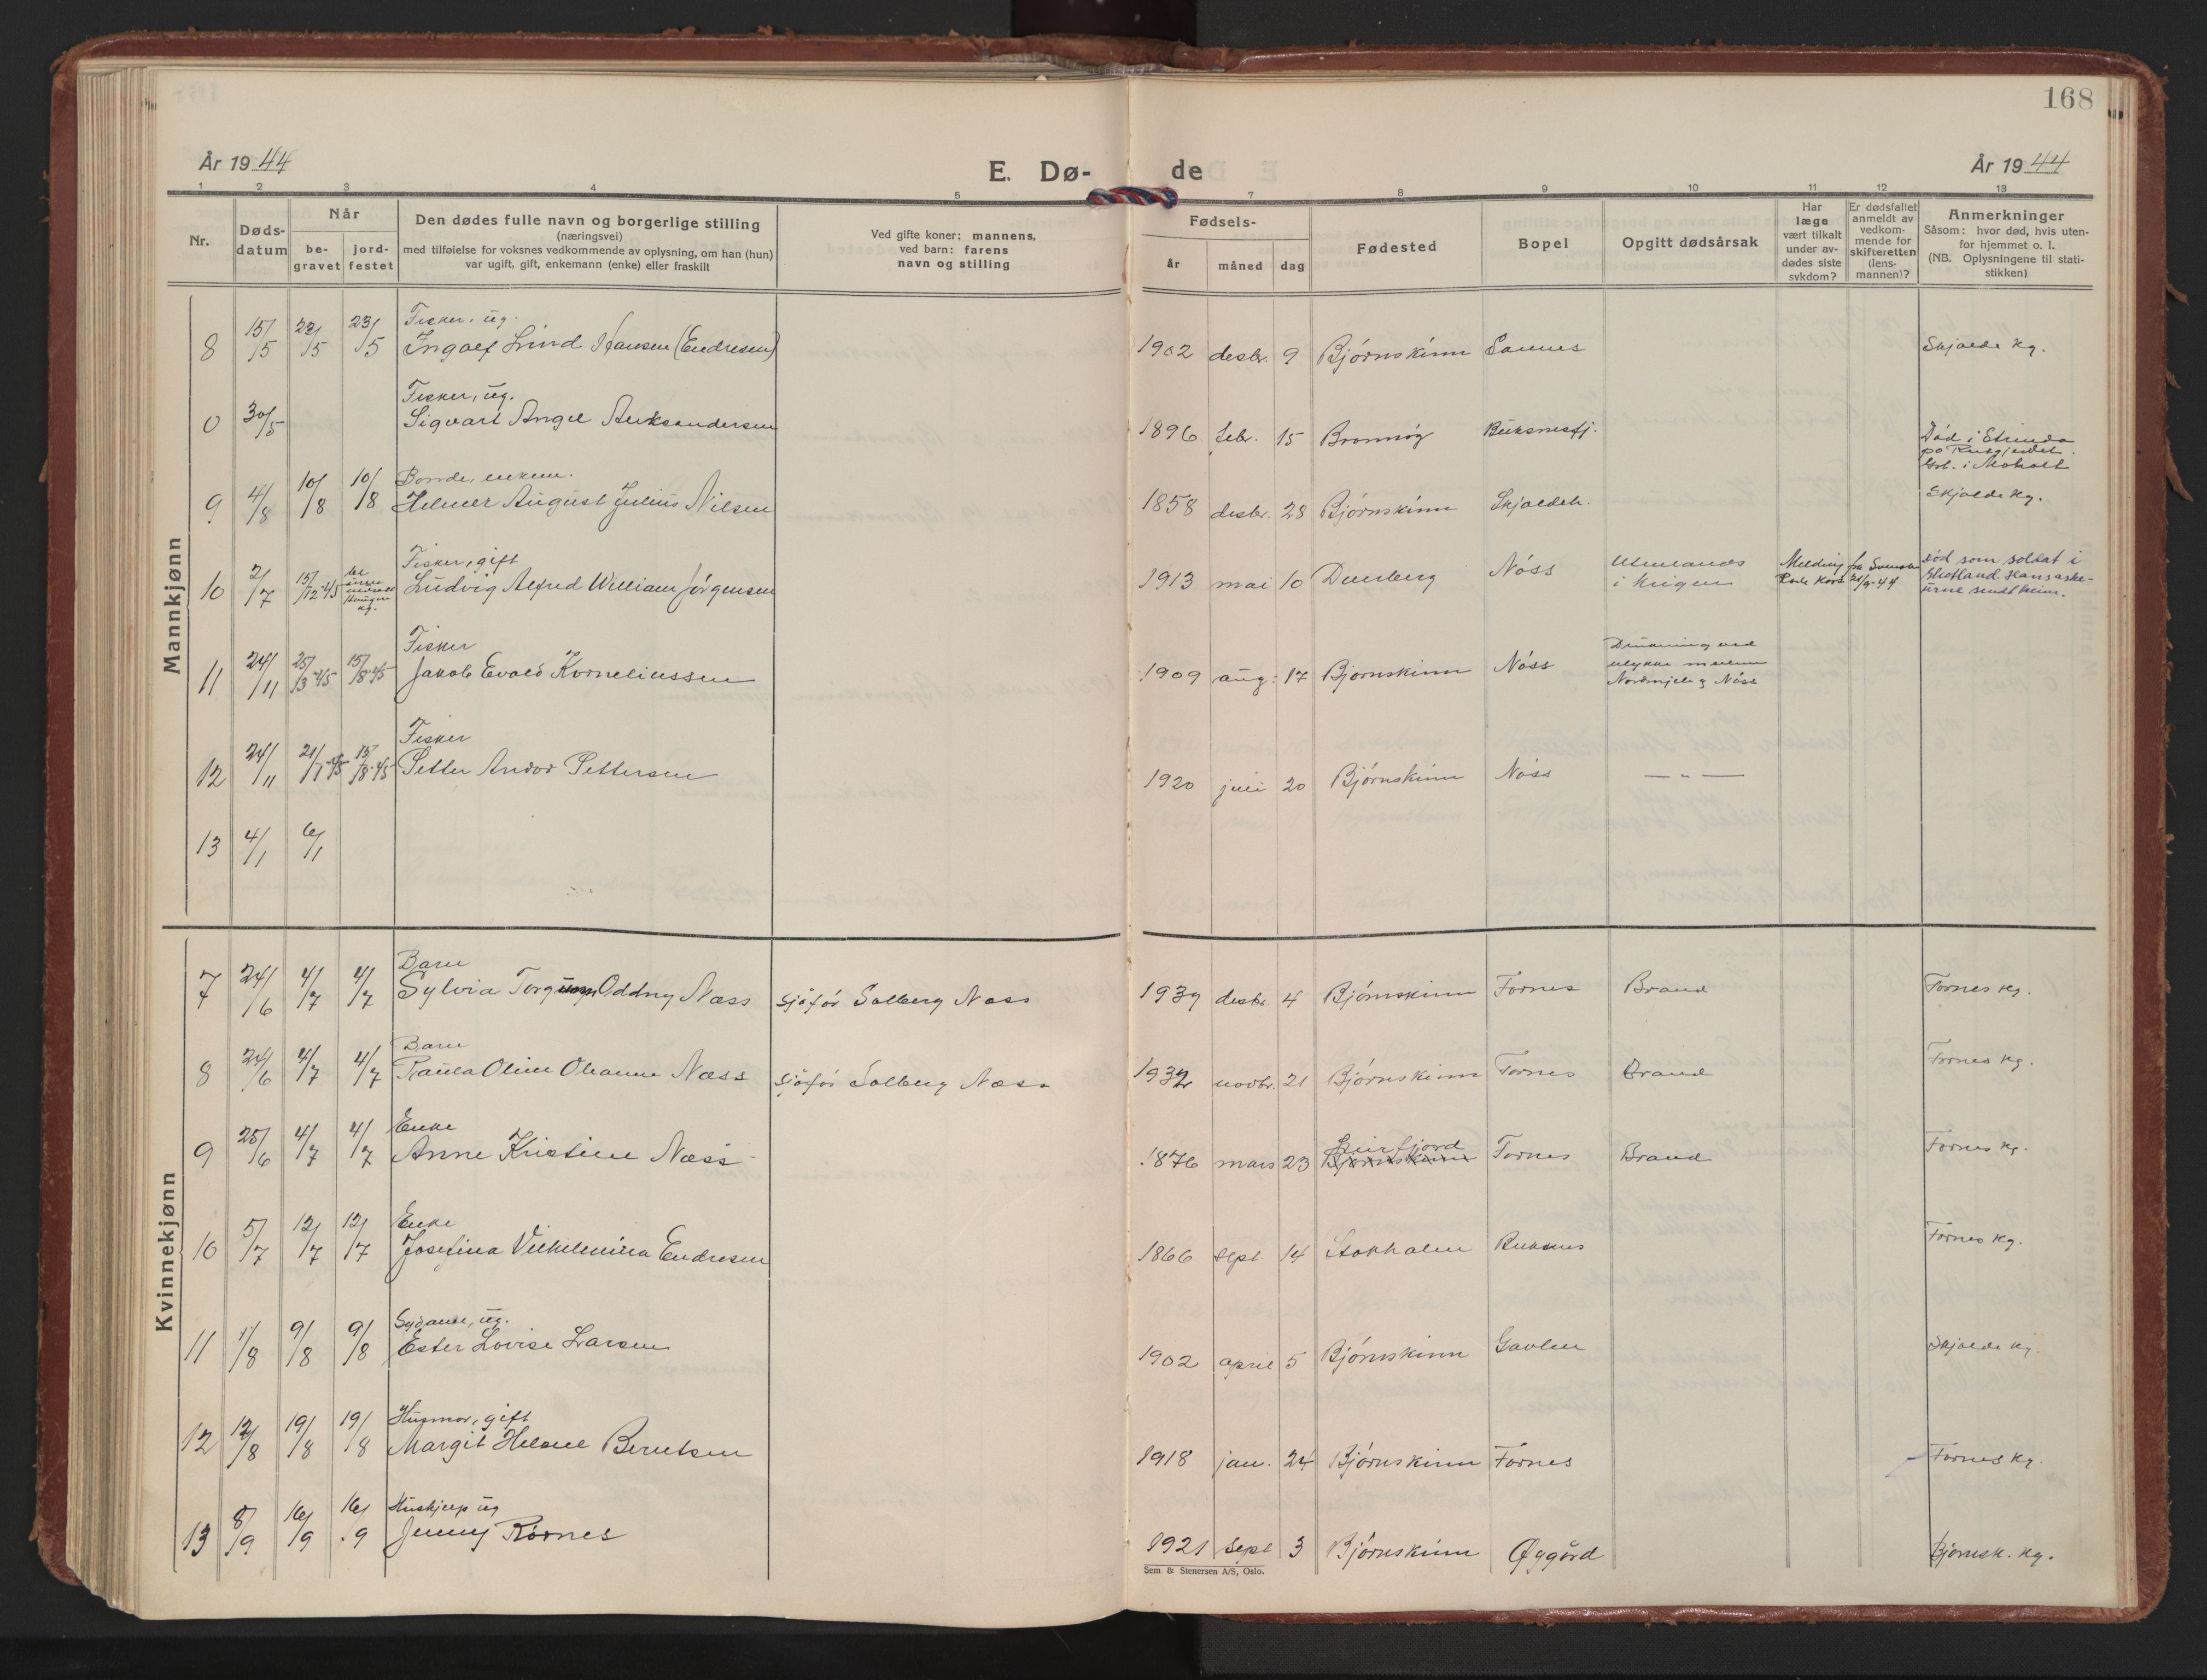 168
År 1944
E. Dø-
de
År 1944
1 2 3 4 5 7 8 9 10 11 12 13
Nr.
Døds-
datum
Når
be-
gravet
jord-
festet
Den dødes fulle navn og borgerlige stilling
(næringsvei)
med tilføielse for voksnes vedkommende av oplysning, om han (hun)
var ugift, gift, enkemann (enke) eller fraskilt
Ved gifte koner: mannens,
ved barn: farens
navn og stilling
Fødsels-
år
måned
dag
Fødested
Bopel
Opgitt dødsårsak
Har
læge
vært tilkalt
under av-
dødes siste
sykdom?
Er dødsfallet
anmeldt av
vedkom-
mende for
skifteretten
(lens-
mannen)?
Anmerkninger
Såsom: hvor død, hvis uten-
for hjemmet o. l.
(NB. Oplysningene til stati-
stikken)
Mannkjønn
Fisker, ug.
8 15/5 23/5 23/5 Ingolf Lind Hansen (Endresen) 1902 desbr. 9 Bjørnskinn Sannes Skjolde kg.
Fisker, ug.
0 30/5 Sigvart Angel Aleksandersen 1896 febr. 15 Brønnøy Buksnesfj.
Død i Strinda
Grl. i Moholt
Bonde, enkem.
9 4/8 10/8 10/8 Helmer August Julius Nilsen 1858 desbr. 28 Bjørnskinn Skjoldeh. Skjolde kg.
Fisker, gift
10 2/7 15/12-45 Ludvig Alfred William Jørgensen 1913 mai 10 Dverberg Nöss
Utenlands
i krigen
Melding fra Svenske
Røde Kors 21/9-44
Død som soldat i
Shetland. Hans aske-
urne sendt heim.
Fisker
11 24/11 25/3-45 15/8-45 Jakob Evald Korneliussen 1909 aug. 17 Bjørnskinn Nöss
Drukning ved
ulykke mellem
Nordmjele og Nöss
Fisker
12 24/11 21/1-45 15/8-45 Petter Andor Pettersen 1920 juli 20 Bjørnskinn Nöss — " —
13 4/1 6/1
Kvinnekjønn
Barn
7 24/6 4/7 4/7 Sylvia Torgunn Oddny Næss sjåfør Solberg Næss 1939 desbr. 4 Bjørnskinn Fornes Brand Fornes kg.
Barn
8 24/6 4/7 4/7 Paula Oline Oleanne Næss sjåfør Solberg Næss 1932 novbr. 21 Bjørnskinn Fornes Brand Fornes kg.
Enke
9 25/6 4/7 4/7 Anne Kristine Næss 1876 mars 23 Leirfjord Bjørnskinn Fornes Brand Fornes kg.
Enke
10 5/7 12/7 12/7 Josefina Vilhelmina Endresen 1866 sept. 14 Stokholm Buksnes Fornes kg.
Sydame, ug.
11 1/8 9/8 9/8 Ester Lovise Larsen 1902 april 5 Bjørnskinn Gavlen Skjolde kg.
Husmor, gift
12 12/8 19/8 19/8 Margit Helene Berntsen 1918 jan. 24 Bjørnskinn Fornes Fornes kg.
Huskjelp ug
13 8/9 16/9 16/9 Jenny Rörnes 1921 sept 3 Bjørnskinn Øygård Bjørnsk. kg.
Sem & Stenersen A/S, Oslo.